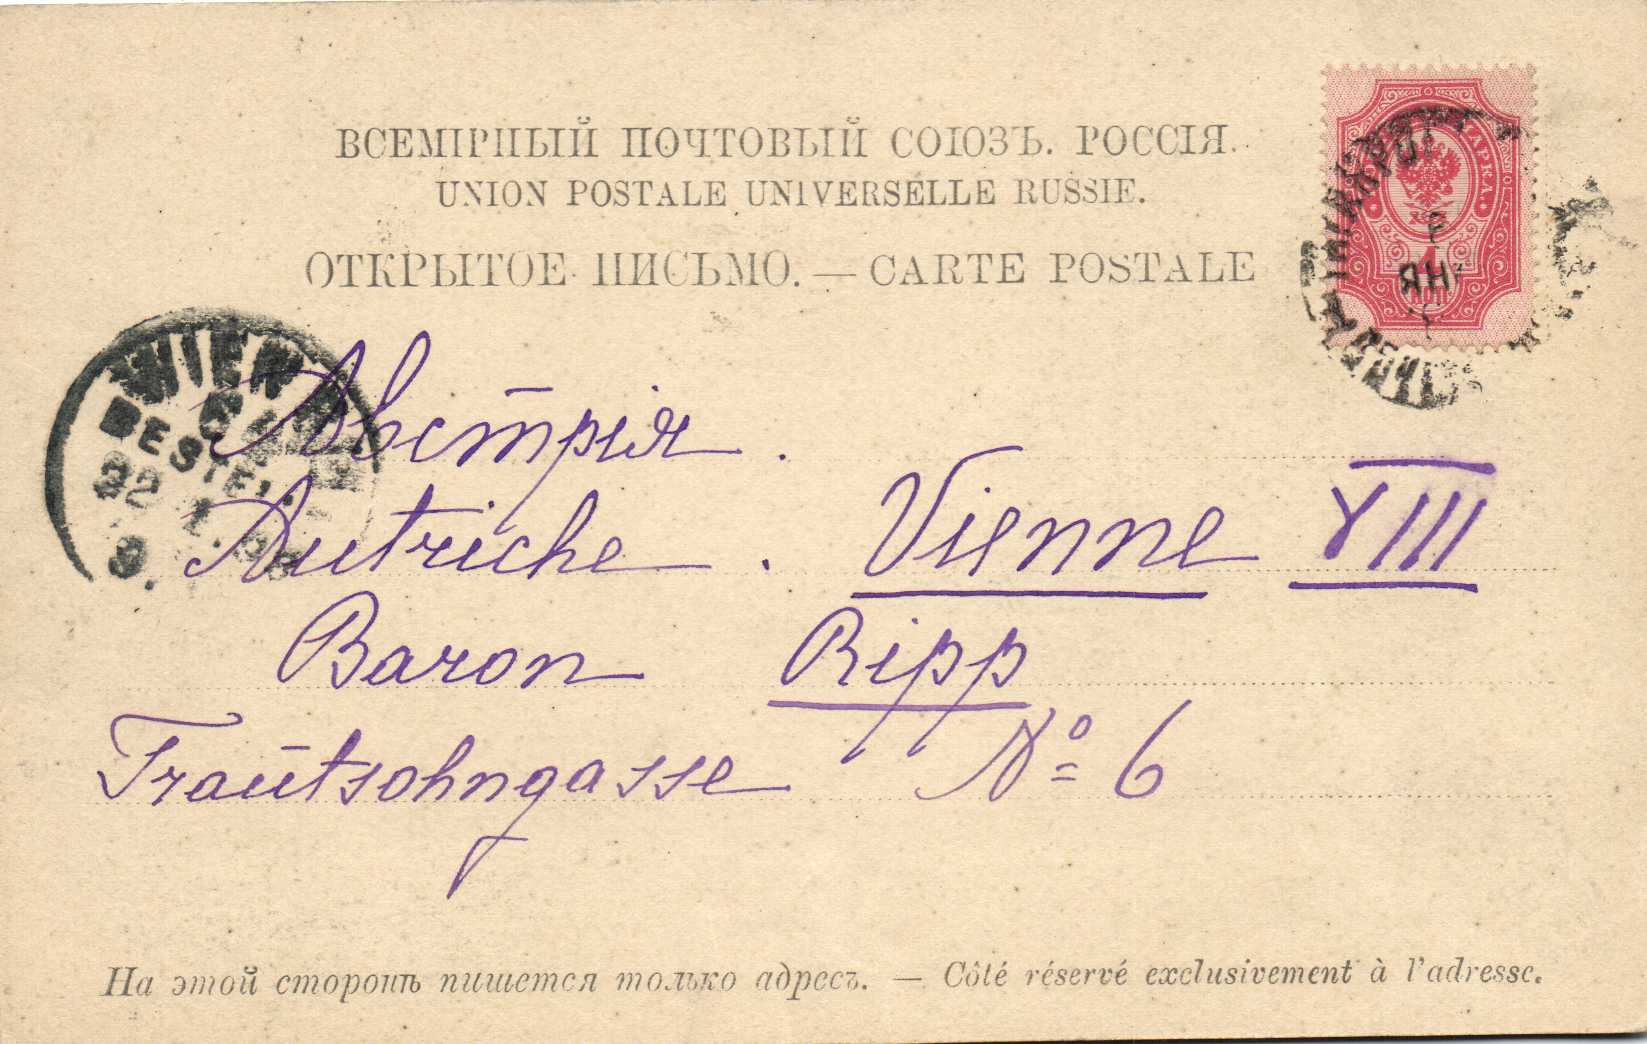 ВСЕМІРНЫЙ ПОЧТОВЫЙ СОЮЗЪ. РОССІЯ.
UNION POSTALE UNIVERSELLE RUSSIE.
ОТКРЫТОЕ ПИСЬМО. — CARTE POSTALE
МАРКА.
4
КОП
ЯНВ
WIEN
BESTELLT
22 1
9.
Австрія.
Autriche. Vienne VIII
Baron Ripp
Trautsohngasse № 6
На этой сторонѣ пишется только адресъ. — Côté réservé exclusivement à l'adresse.